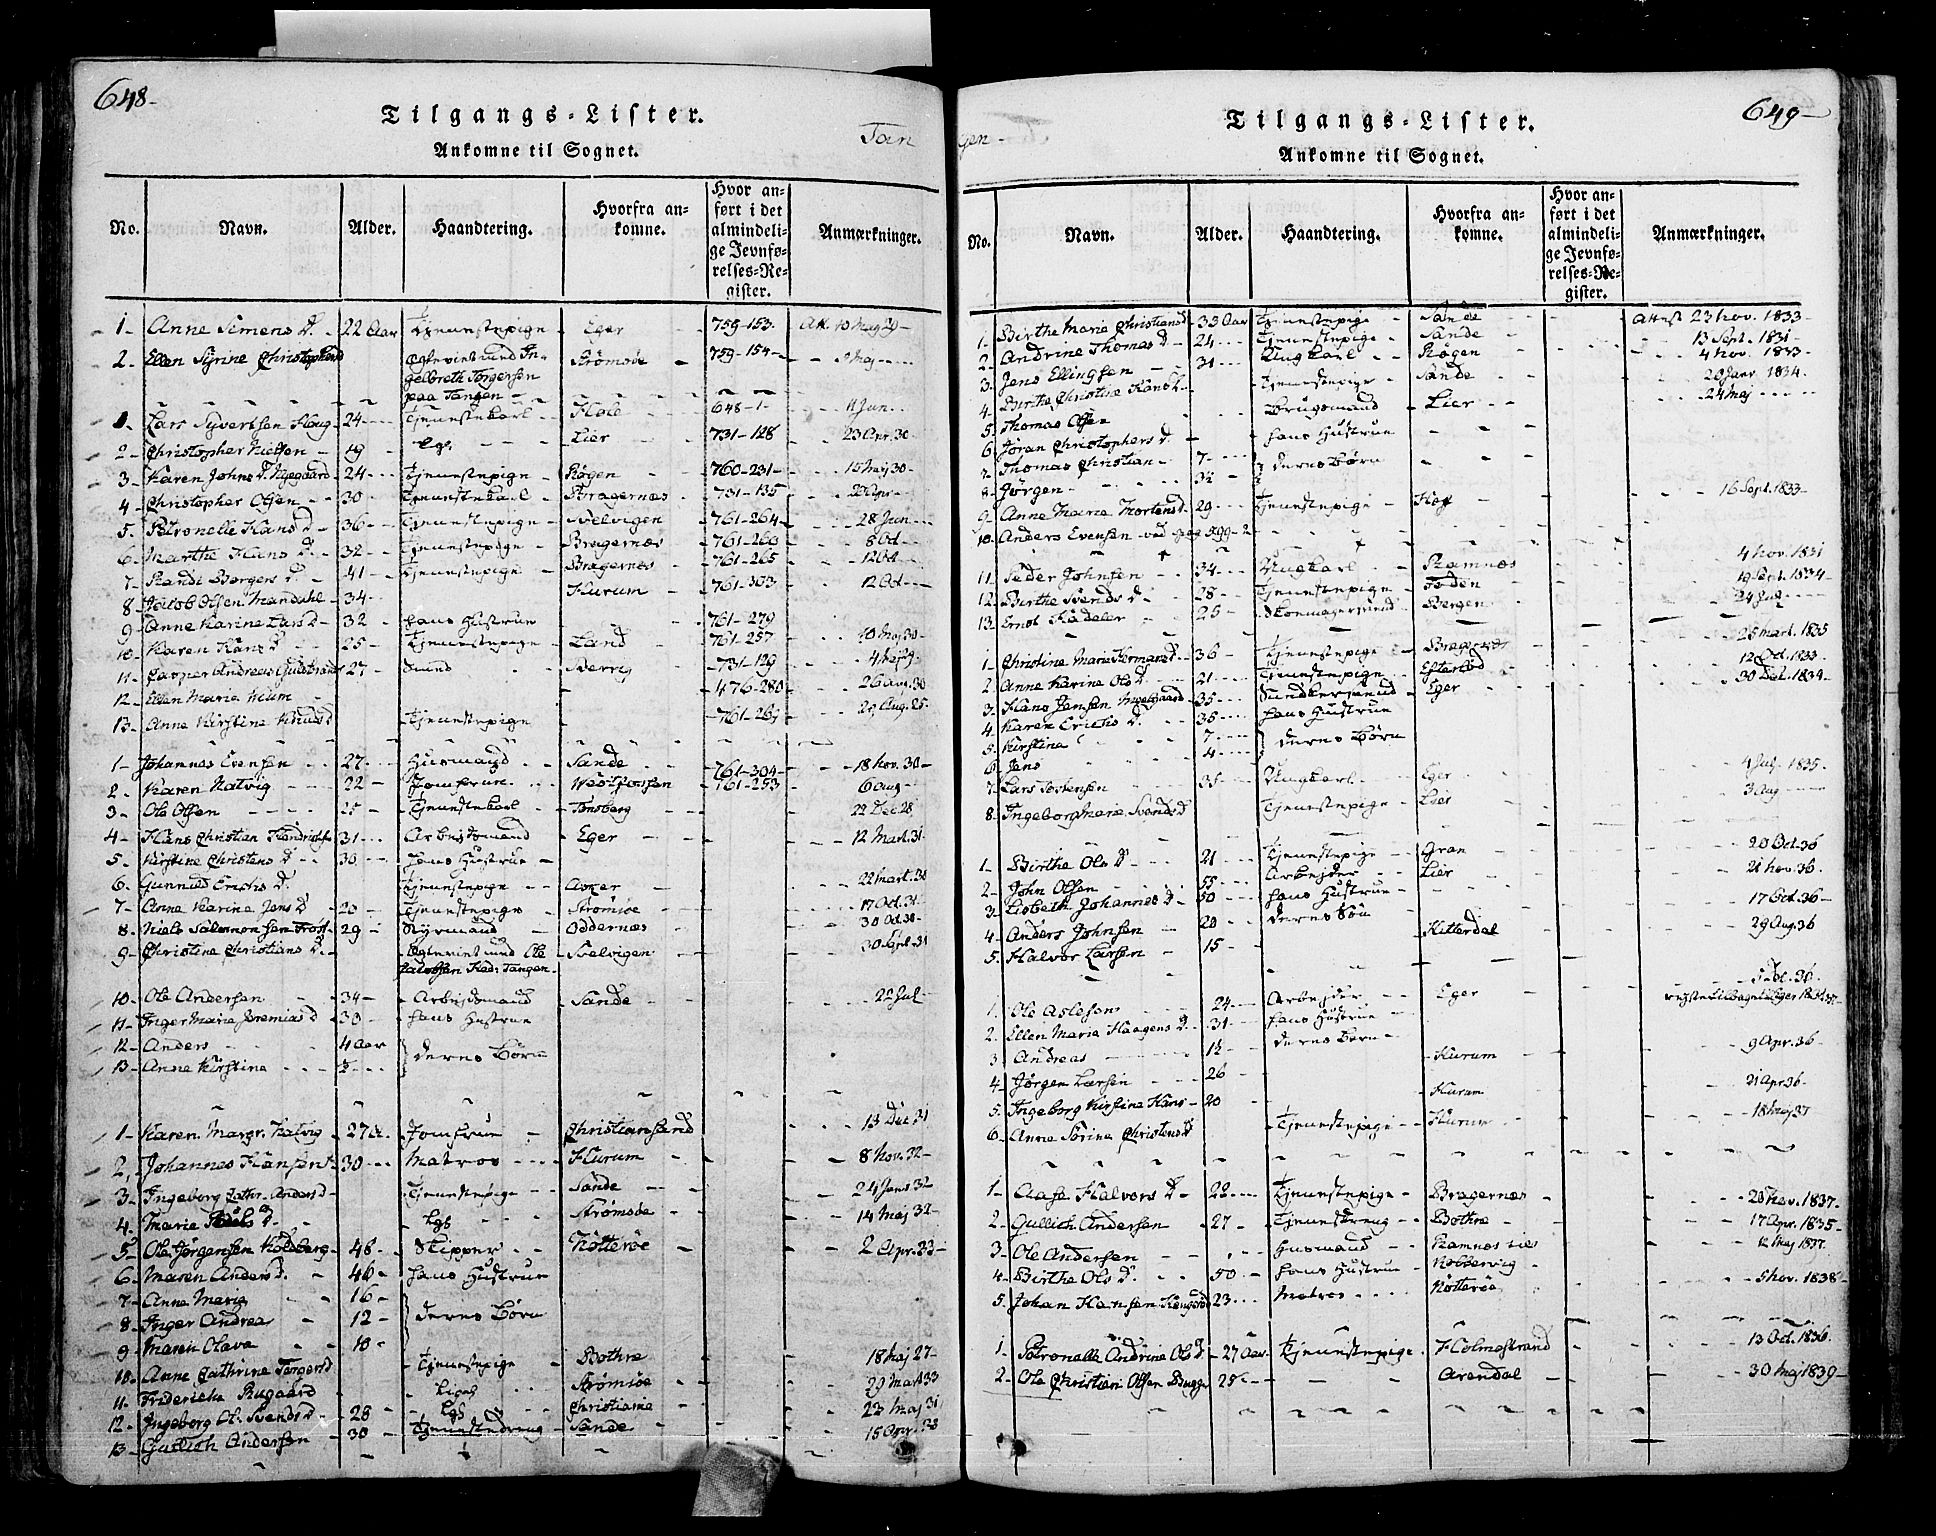 648-
Tilgangs-Lister.
Ankomne til Sognet.
Tan
No. Navn. Alder. Haandtering. Hvorfra ankomne. Hvor anført i det almindelige Jevnførelses-Register. Anmærkninger.
1- Anne Simens D. 22 Aar Tjenestepige Eger 759-153
2. Ellen Syrine Christophers D Strømsøe 759-154
gelbreth Torgersen
paa Tangen
1- Lars Syvertsen Houg 24 Tjenestekarl Hole 648-1- 11 Jun
2- Christopher Nielsen 49 Lier 731-128 23 Apr. 30
3- Karen Johns D. Nyegaard 24 Tjenestepige Røgen 760-231 15 Maj 30
4 Christopher Olsen 30 Tjenestekarl Bragernæs 731-135
5. Petronelle Hans D 36 Tjenestepige Svelvigen 761-264 28 Jun
6- Marthe Hans D. 32 Tjenestepige Bragernæs 761-260 8 Oct
7- Randi Børgers D 41 Tjenestepige Bragernæs 761-265 12 Oct
8 Jacob Olsen Mandahl 34 Hurum 761-303 12 Oct
9- Anne Karine Lars D 32 hans Hustrue 761-279
10- Karen Hans D 25 Tjenestepige Land 761-257 10 Maj 30
11- Casper Andreas 27 Smed 731-129
12- Ellen Marie 476-280 26 Aug. 30
13- Anne Kirstine Knuds D Tjenestepige 761-261 Aug. 25
1- Johannes Evensen 27 Huusmand Sande 761-304 18 Nov. 30
2- Karen Natvig 22 Jomfrue Westfossen 761-253 6 Aug
3- Ole Olsen 25 Tjenestekarl Tønsberg 22 Dec 28
4- Hans Christian 31 Arbejdsmand Eger 12 Mart. 31
5. Kirstine Christens D 30 hans Hustrue
6. Gunnild Erichs D. Tjenestepige Asker 22 Mart. 30
7- Anne Karine Jens D 20 Tjenestepige Strømsøe 17 Oct. 31
8. Niels Salomonsen 29 Styrmand Oddernæs 30 Oct. 30
9- Christine Christians D. Svelvigen 30 Sept. 31
Jacobsen Tangen
10- Ole Andersen 34 Arbejdsmand Sande 22 Jul
11- Inger Maria Jeremias D 30 hans Hustrue
12- Anders 4 Aar deres Børn
13- Anne Kirstine
1- Karen Margr. Natvig 27 Jomfrue Christiansand 13 Dec. 31
2. Johannes Hansen 30 Matros Hurum 8 Nov. 32
3. Ingeborg Cathr. Anders D Tjenestepige Sande 24 Janr 32
4. Marie D. Strømsøe 14 Maj 32
5. Ole Jørgensen Kolsberg 48 Skipper Nøtterøe 2 Apr. 33
6. Maren Anders D. 46 hans Hustrue
7- Anne Maria 16 deres Børn
8- Inger Andrea 12
9- Maren Olava 10
10. Anne Cathrine Torgers D Tjenestepige Bothne 18 Maj 27
11. Friderich Rugaard Strømsøe 29 Mart 33
12- Ingeborg Ol. Svends D 28 Christiania 23 Maj 31
13- Gullich Andersen 30 Tjenestedreng Sande 15 Apr. 33
649-
Tilgangs-Lister.
gen-
Ankomne til Sognet.
No. Navn. Alder. Haandtering. Hvorfra ankomne. Hvor anført i det almindelige Jevnførelses-Register. Anmærkninger.
1- Birthe Marie Christians D 33 Aar Tjenestepige Sande Attest 23 Nov. 1833
2- Andrine Thomas D 24 Tjenestepige Sande 13 Sept. 1831
3- Jens Ellingsen 31 Ungkarl Røgen 4 Nov. 1833
4- Birthe Christine Hans D Tjenestepige Sande 20 Janr 1834
5. Thomas Olsen Brugsmand Lier 24 Maj
6 Jøran Christophers D. hans Hustrue
7- Thomas Christian 7 deres Børn
8- Jørgen
9- Anne Marie Mortens D 29 Tjenestepige Hof 16 Sept. 1833
10- Anders Evensen vid pag 599-2
11- Peder Johnsen 34 Ungkarl Ramnæs 4 Nov. 1831
12- Birthe Svends D 28 Tjenestepige 19 Sept. 1834
13. Ernst Kadeler 25 Skomagersvend Bergen
1- Christine Marie Hermans D 36 Tjenestepige Bragernæs 25 Mart. 1835
2- Anne Karine Ols D. 21 Tjenestepige 12 Oct. 1833
3- Hans Jensen 35 Eger 30 Oct. 1834
4- Karen Erichs D. 36 hans Hustrue
5. Kirstina 7 deres Børn
6- Jens 4
7- Lars Torstensen 35 Ungkarl Eger 4 Jul. 1835
8. Ingeborg Marie Svends D Tjenestepige Lier 3 Aug
1- Birthe Ols D 21 Tjenestepige Gran 20 Oct. 36
2- John Olsen 55 Arbejder Lier 21 Nov. 36
3- Lisbeth Johannes D 50 hans Hustrue
4- Anders Johnsen 20 deres Søn 17 Oct. 36
5. Halvor Larsen 15 Hitterdal 29 Aug. 36
1. Ole Aslesen 24 Arbejder Eger 5 Oct. 36
2. Ellen Maria Haagens D. 31 hans Hustrue
3- Andreas deres Barn 9 Apr. 36
4- Jørgen Larsen 26 Hurum
5. Ingeborg Kirstine Hans 20 Hurum 21 Apr 36
6- Anne Sørine Christens D Tjenestepige Hurum 18 Maj 37
1- Aase Halvors D 22 Tjenestepige Bragernæs 20 Nov. 1837
2- Gullich Andersen 27 Tjenestedreng Bothne 17 Apr. 1835
3- Ole Andersen Husmand Ramnæs 12 Maj 1837
4- Birthe Ols D. 50 hans Hustrue
5. Johan Hansen 23 Matros Nøtterøe 5 Nov. 1838
1- Petronelle Andrine Ols D 27 Aar Tjenestepige Holmestrand 13 Oct. 1836
2- Ole Christian Olsen Brygge 25 Arendal 30 Maj 1839